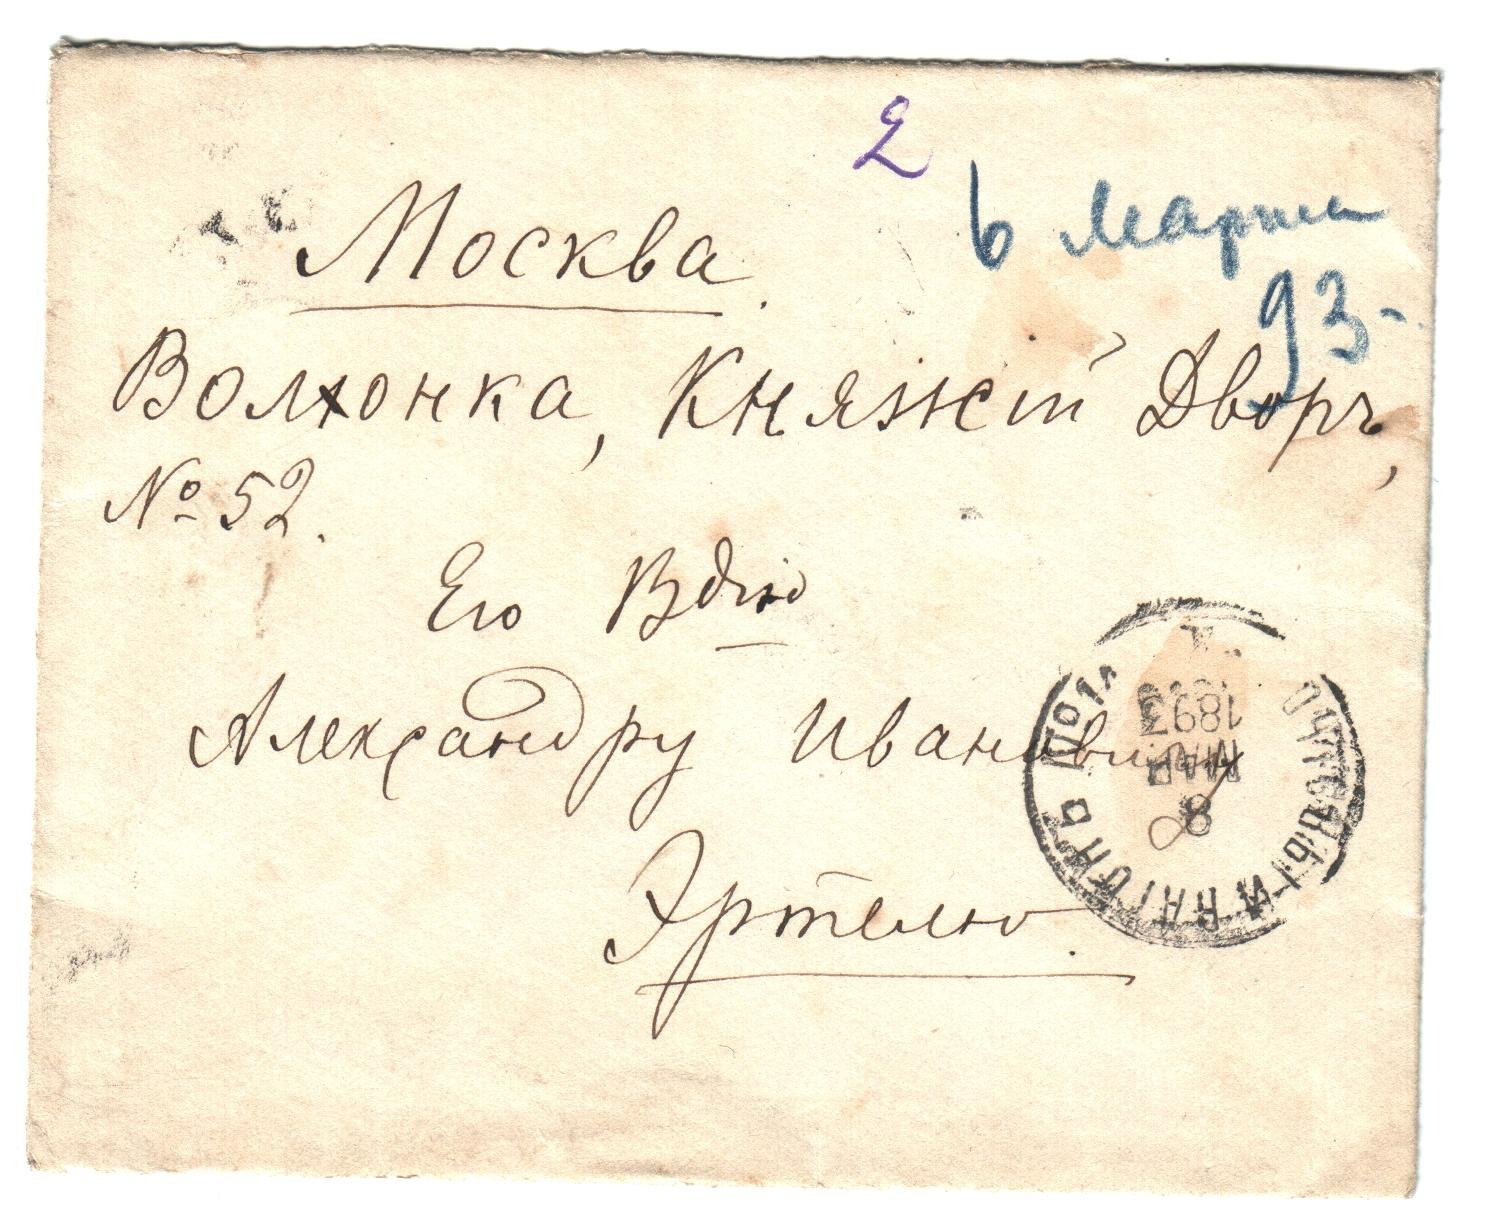 2
6 Марта
93-
Москва.
Волхонка, Княжій Дворъ,
№ 52.
Его Вдію
Александру Ивановичу
Эртелю.
ПОЧТОВЫЙ ВАГОНЪ
1893
МАР
8